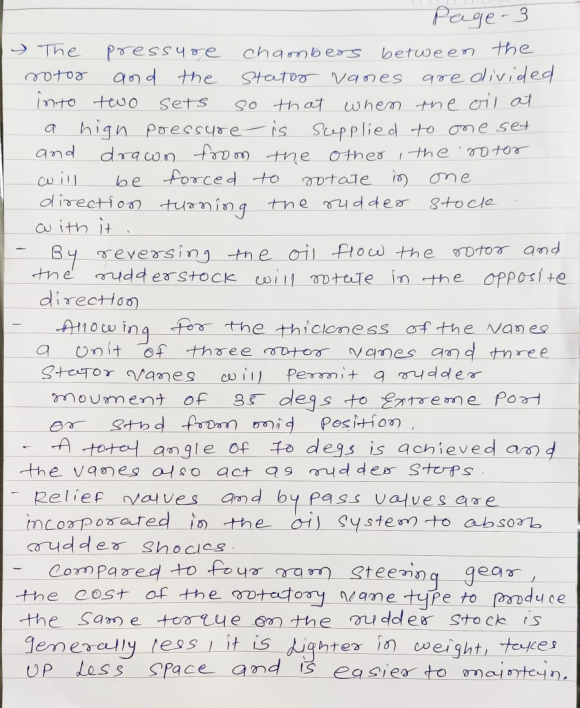 Page-3
→ The pressure chambers between the
rotor and the stator vanes are divided
into two sets so that when the oil at
a high pressure is supplied to one set
and drawn from the other, the rotor
will be forced to rotate in one
direction turning the rudder stock
with it.
- By reversing the oil flow the rotor and
the rudderstock will rotate in the opposite
direction
- Allowing for the thickness of the vanes
a unit of three rotor vanes and three
stator vanes will permit a rudder
movment of 35 degs to Extreme Port
or stbd from mid position.
- A total angle of 70 degs is achieved and
the vanes also act as rudder stops.
- Relief valves and by pass valves are
incorporated in the oil system to absorb
rudder shocks.
- Compared to four ram steering gear,
the cost of the rotatory vane type to produce
the same torque on the rudder stock is
generally less, it is lighter in weight, takes
up less space and is easier to maintain.